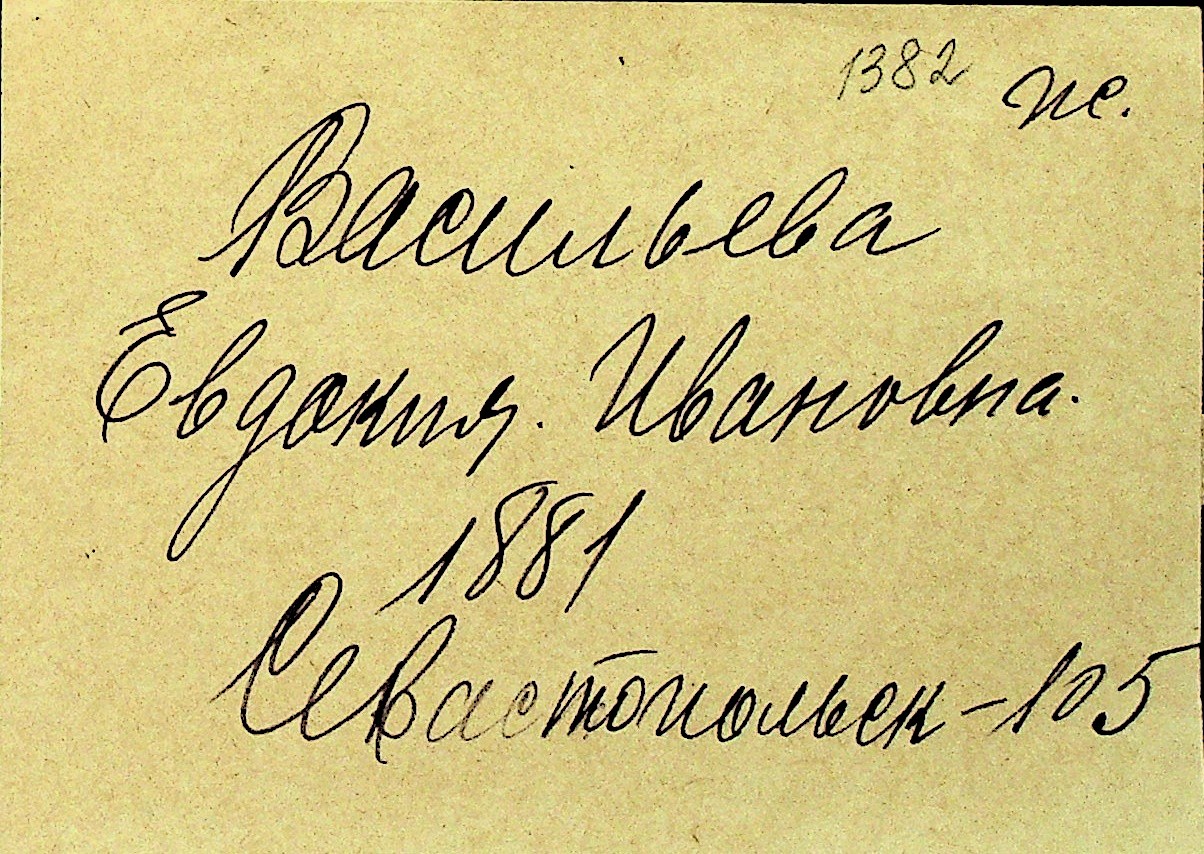 1382 ж.
Васильева
Евдокия. Ивановна.
1881
Севастопольск - 105